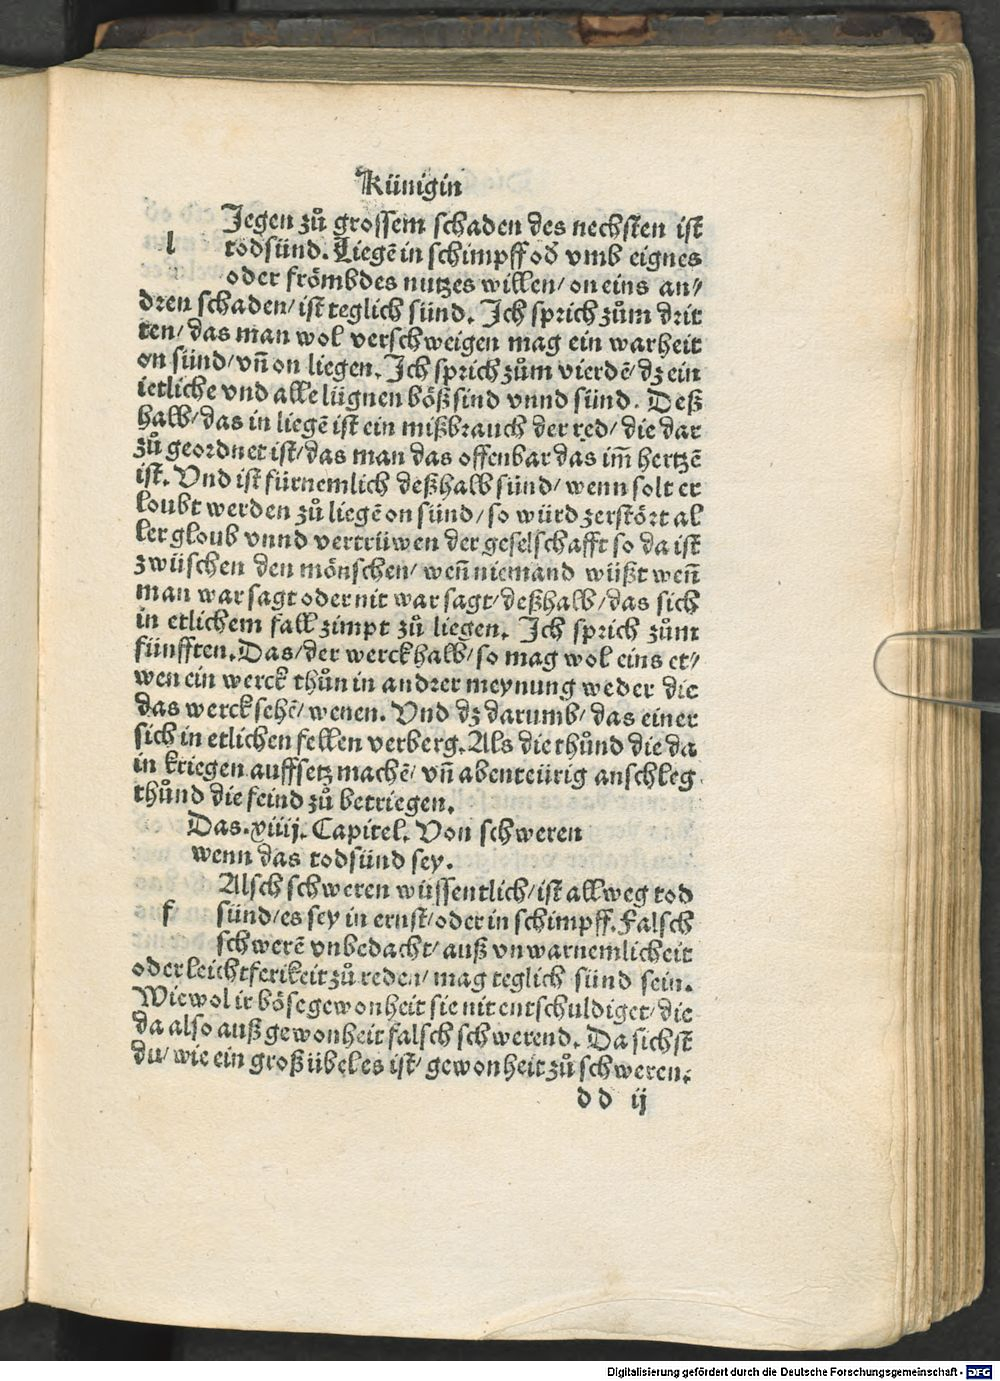 Künigin
Jegen zů grossem schaden des nechsten ist
l todsünd. Liegē in schimpff oď vmb eignes
oder frömbdes nutzes willen/ on eins an⸗
dren schaden/ ist teglich sünd. Ich sprich zům drit
ten/ das man wol verschweigen mag ein warheit
on sünd/ vn̄ on liegen. Ich sprich zům vierdē/ dz ein
ietliche vnd alle lügnen bößsind vnnd sünd. Deß
halb/ das in liegē ist ein mißbrauch der red/ die dar
zů geordnet ist/ das man das offenbar das im̄ hertzē
ist. Vnd ist fürnemlich deßhalb sünd/ wenn solt er
loubt werden zů liegē on sünd/ so würd zerstört al
ler gloub vnnd vertrüwen der geselschafft so da ist
zwüschen den mönschen/ wen̄ niemand wüßt wen̄
man war sagt oder nit war sagt/ deßhalb/ das sich
in etlichem fall zimpt zů liegen. Ich sprich zům
fünfften. Das/ der werckhalb/ so mag wol eins et⸗
wen ein werck thůn in andrer meynung weder die
das werck sehē/ wenen. Vnd dz darumb/ das einer
sich in etlichen fellen verberg. Als die thůnd die da
in kriegen auffsetz machē/ vn̄ abenteürig anschleg
thůnd die feind zů betriegen.
Das. xiiij. Capitel. Von schweren
wenn das todsünd sey.
Alsch schweren wüssentlich/ ist allweg tod
f sünd/ es sey in ernst/ oder in schimpff. Falsch
schwerē vnbedacht/ auß vnwarnemlicheit
oder leichtferikeit zů reden/ mag teglich sünd sein.
Wiewol ir böse gewonheit sie nit entschuldiget/ die
da also auß gewonheit falsch schwerend. Da sichst
du/ wie ein groß übel es ist/ gewonheit zů schweren.
d d ij
Digitalisierung gefördert durch die Deutsche Forschungsgemeinschaft - DFG